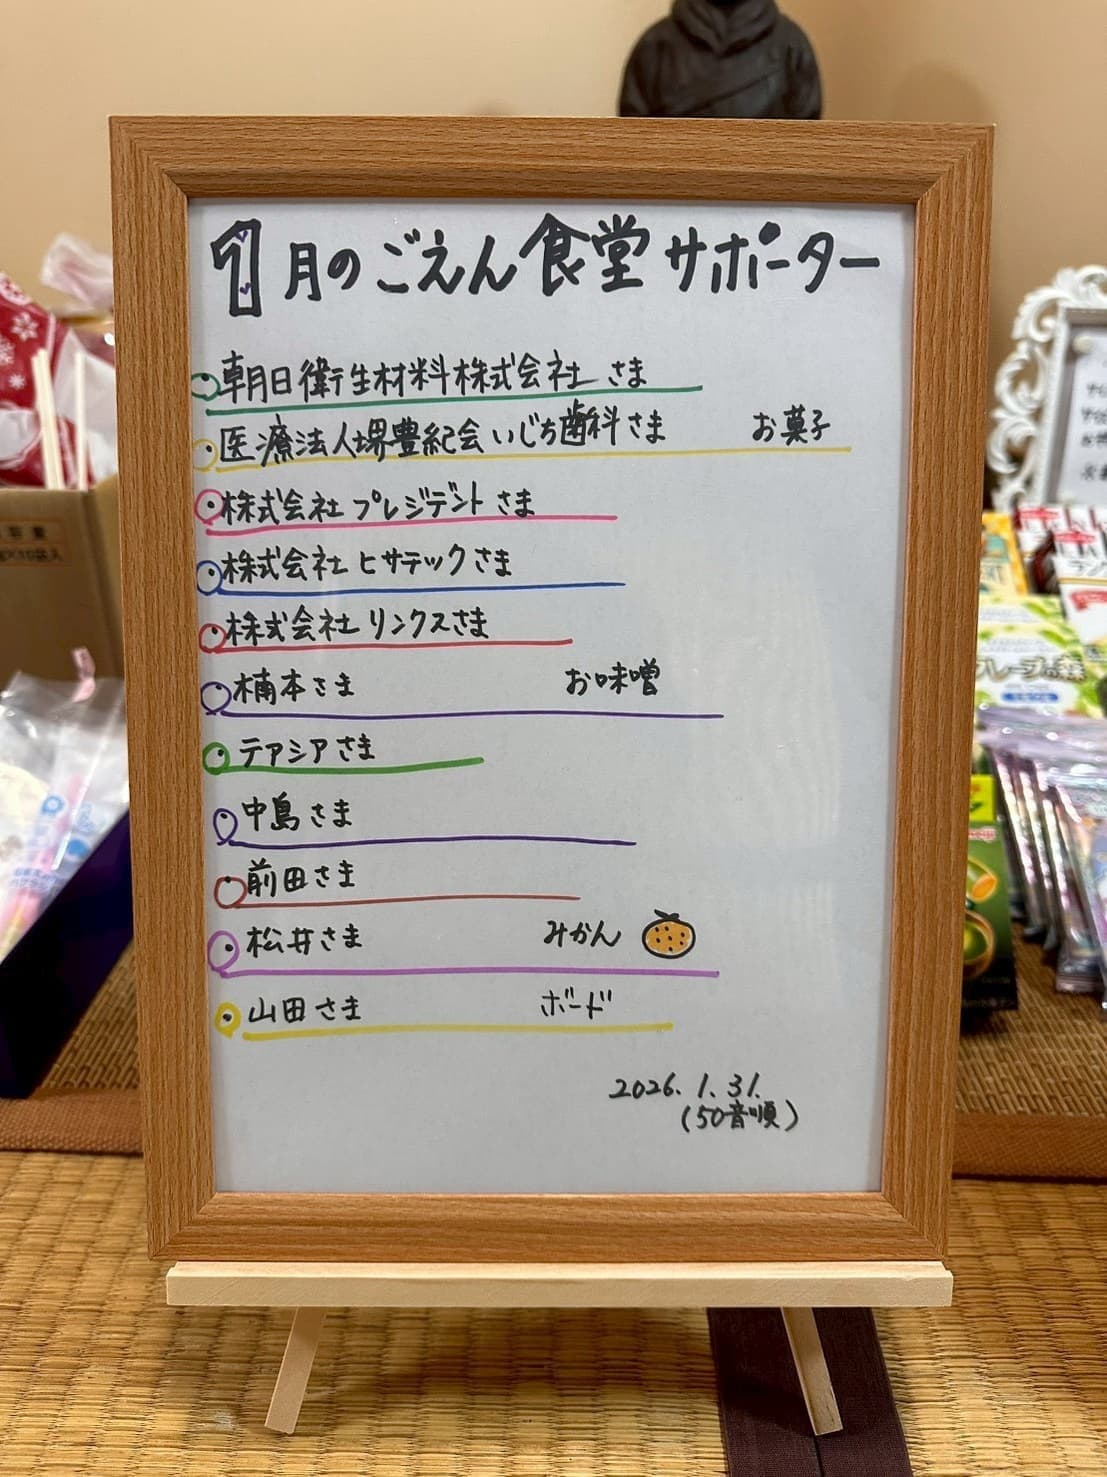 1月のごえん食堂サポーター
朝日衛生材料株式会社さま
医療法人堺豊紀会いじち歯科さま お菓子
株式会社プレジデントさま
株式会社ヒサテックさま
株式会社リンクスさま
楠本さま お味噌
テアシアさま
中島さま
前田さま
松井さま みかん
山田さま ボード
2026.1.31.
(50音順)